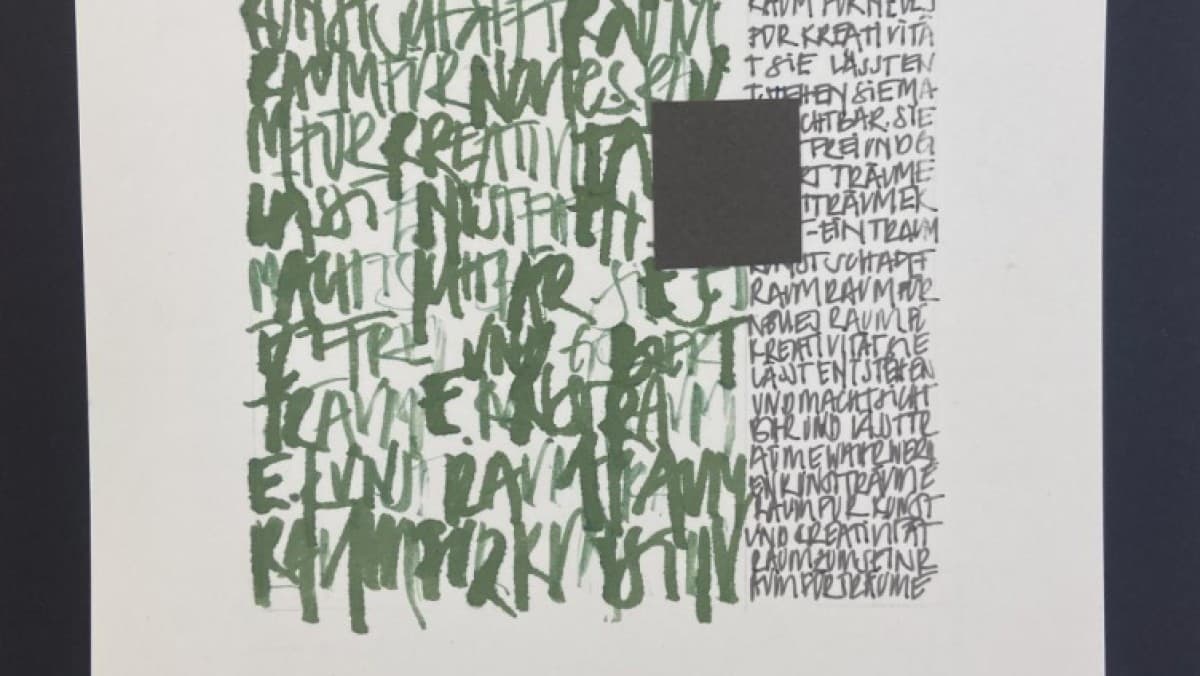 KUNST SCHAFFT RAUM
RAUM FÜR NEUES RAU
M FÜR KREATIVITÄ
LÄSST ENTSTEHEN
MACHT SICHTBAR SIE
UND
TRÄUME KUNSTRÄUM
E. KUNST RAUM RAUM
RAUM UND
RAUM FÜR NEUES
FÜR KREATIVITÄ
T SIE LÄSST EN
TSTEHEN SIE MA
CHTBAR. SIE
T FREI UND G
RT TRÄUME
TTRÄUME K
T - EIN TRAUM
KUNST SCHAFFT
RAUM RAUM FÜR
NEUES RAUM FÜ
KREATIVITÄT SIE
LÄSST ENTSTEHEN
UND MACHT SICHT
BAR UND LÄSST TR
ÄUME WAHR WERD
EN KUNSTTRÄUME
RAUM FÜR KUNST
UND KREATIVITÄT
RAUM ZUM SEIN R
AUM FÜR TRÄUME